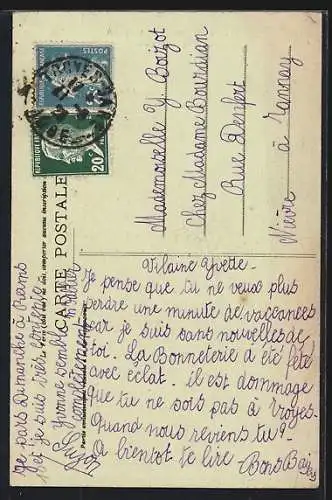 Mademoiselle Y Boizot
Chez Madame Bourdian
Rue Denfert
à Tannay
Nièvre
CARTE POSTALE
POSTES
20c
Vilaine Yvette.
Je pense que tu ne veux plus
perdre une minute de vaccances
car je suis sans nouvelles de
toi. La Bonneterie a été fêté
avec éclat. il est dommage
que tu ne sois pas à Troyes.
Quand nous reviens tu?
A bientôt te lire Bons Baisers
Je pars Dimanche à Reims
et je suis très contente
Yvonne semble
complètement